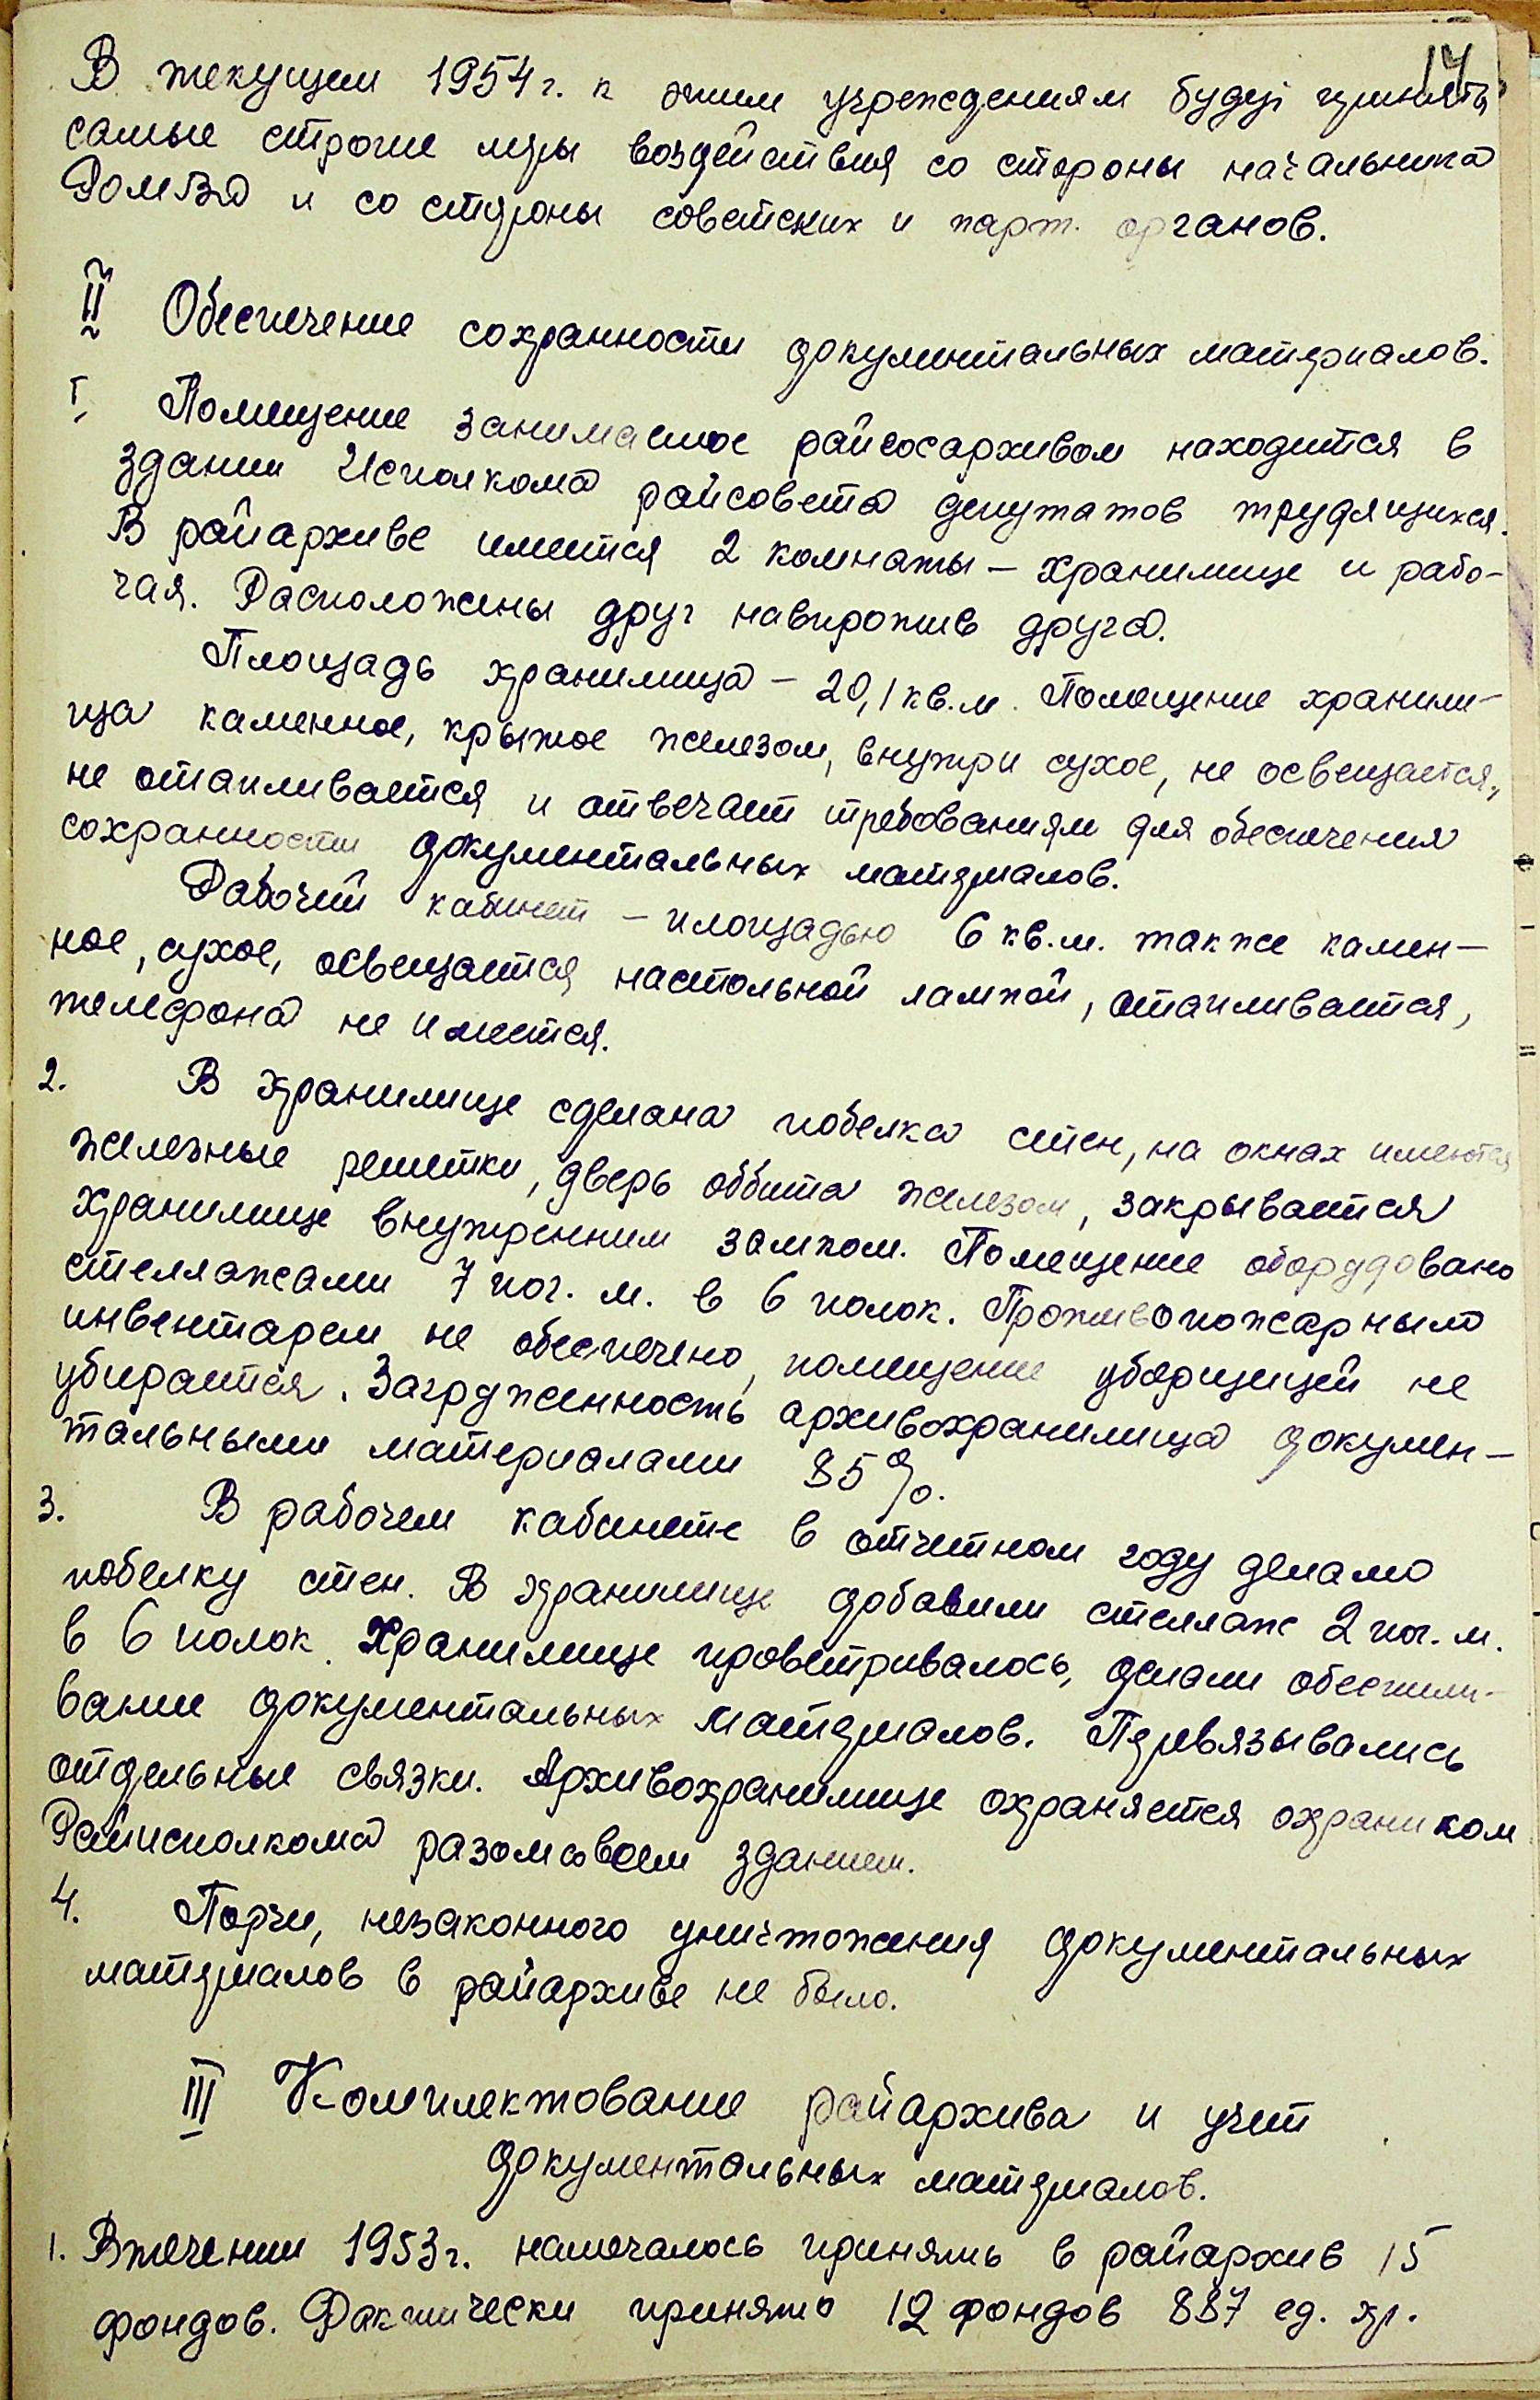 17
В текущем 1954 г. к этим учреждениям будут приняты
самые строгие меры воздействия со стороны начальника
РОМВД и со стороны советских и парт. органов.
II Обеспечение сохранности документальных материалов.
1. Помещение занимаемое райгосархивом находится в
здании Исполкома райсовета депутатов трудящихся.
В райархиве имеется 2 комнаты – хранилище и рабо-
чая. Расположены друг навпротив друга.
Площадь хранилища – 20,1 кв.м. Помещение хранили-
ща каменное, крытое железом, внутри сухое, не освещается,
не отапливается и отвечает требованиям для обеспечения
сохранности документальных материалов.
Рабочий кабинет – площадью 6 кв.м. также камен-
ное, сухое, освещается настольной лампой, отапливается,
телефона не имеется.
2. В хранилище сделана побелка стен, на окнах имеются
железные решетки, дверь оббита железом, закрывается
хранилище внутренним замком. Помещение оборудовано
стеллажами 7 пог. м. в 6 полок. Противопожарным
инвентарем не обеспечено, помещение уборщицей не
убирается. Загруженность архивохранилища докумен-
тальными материалами 85%.
3. В рабочем кабинете в отчетном году делали
побелку стен. В хранилище добавили стеллаж 2 пог. м.
в 6 полок. Хранилище проветривалось, делали обеспыли-
вание документальных материалов. Перевязывались
отдельные связки. Архивохранилище охраняется охраником
Райисполкома разом со всем зданием.
4. Порчи, незаконного уничтожения документальных
материалов в райархиве не было.
III Комплектование райархива и учет
документальных материалов.
1. В течении 1953 г. намечалось принять в райархив 15
фондов. Фактически принято 12 фондов 887 ед. хр.